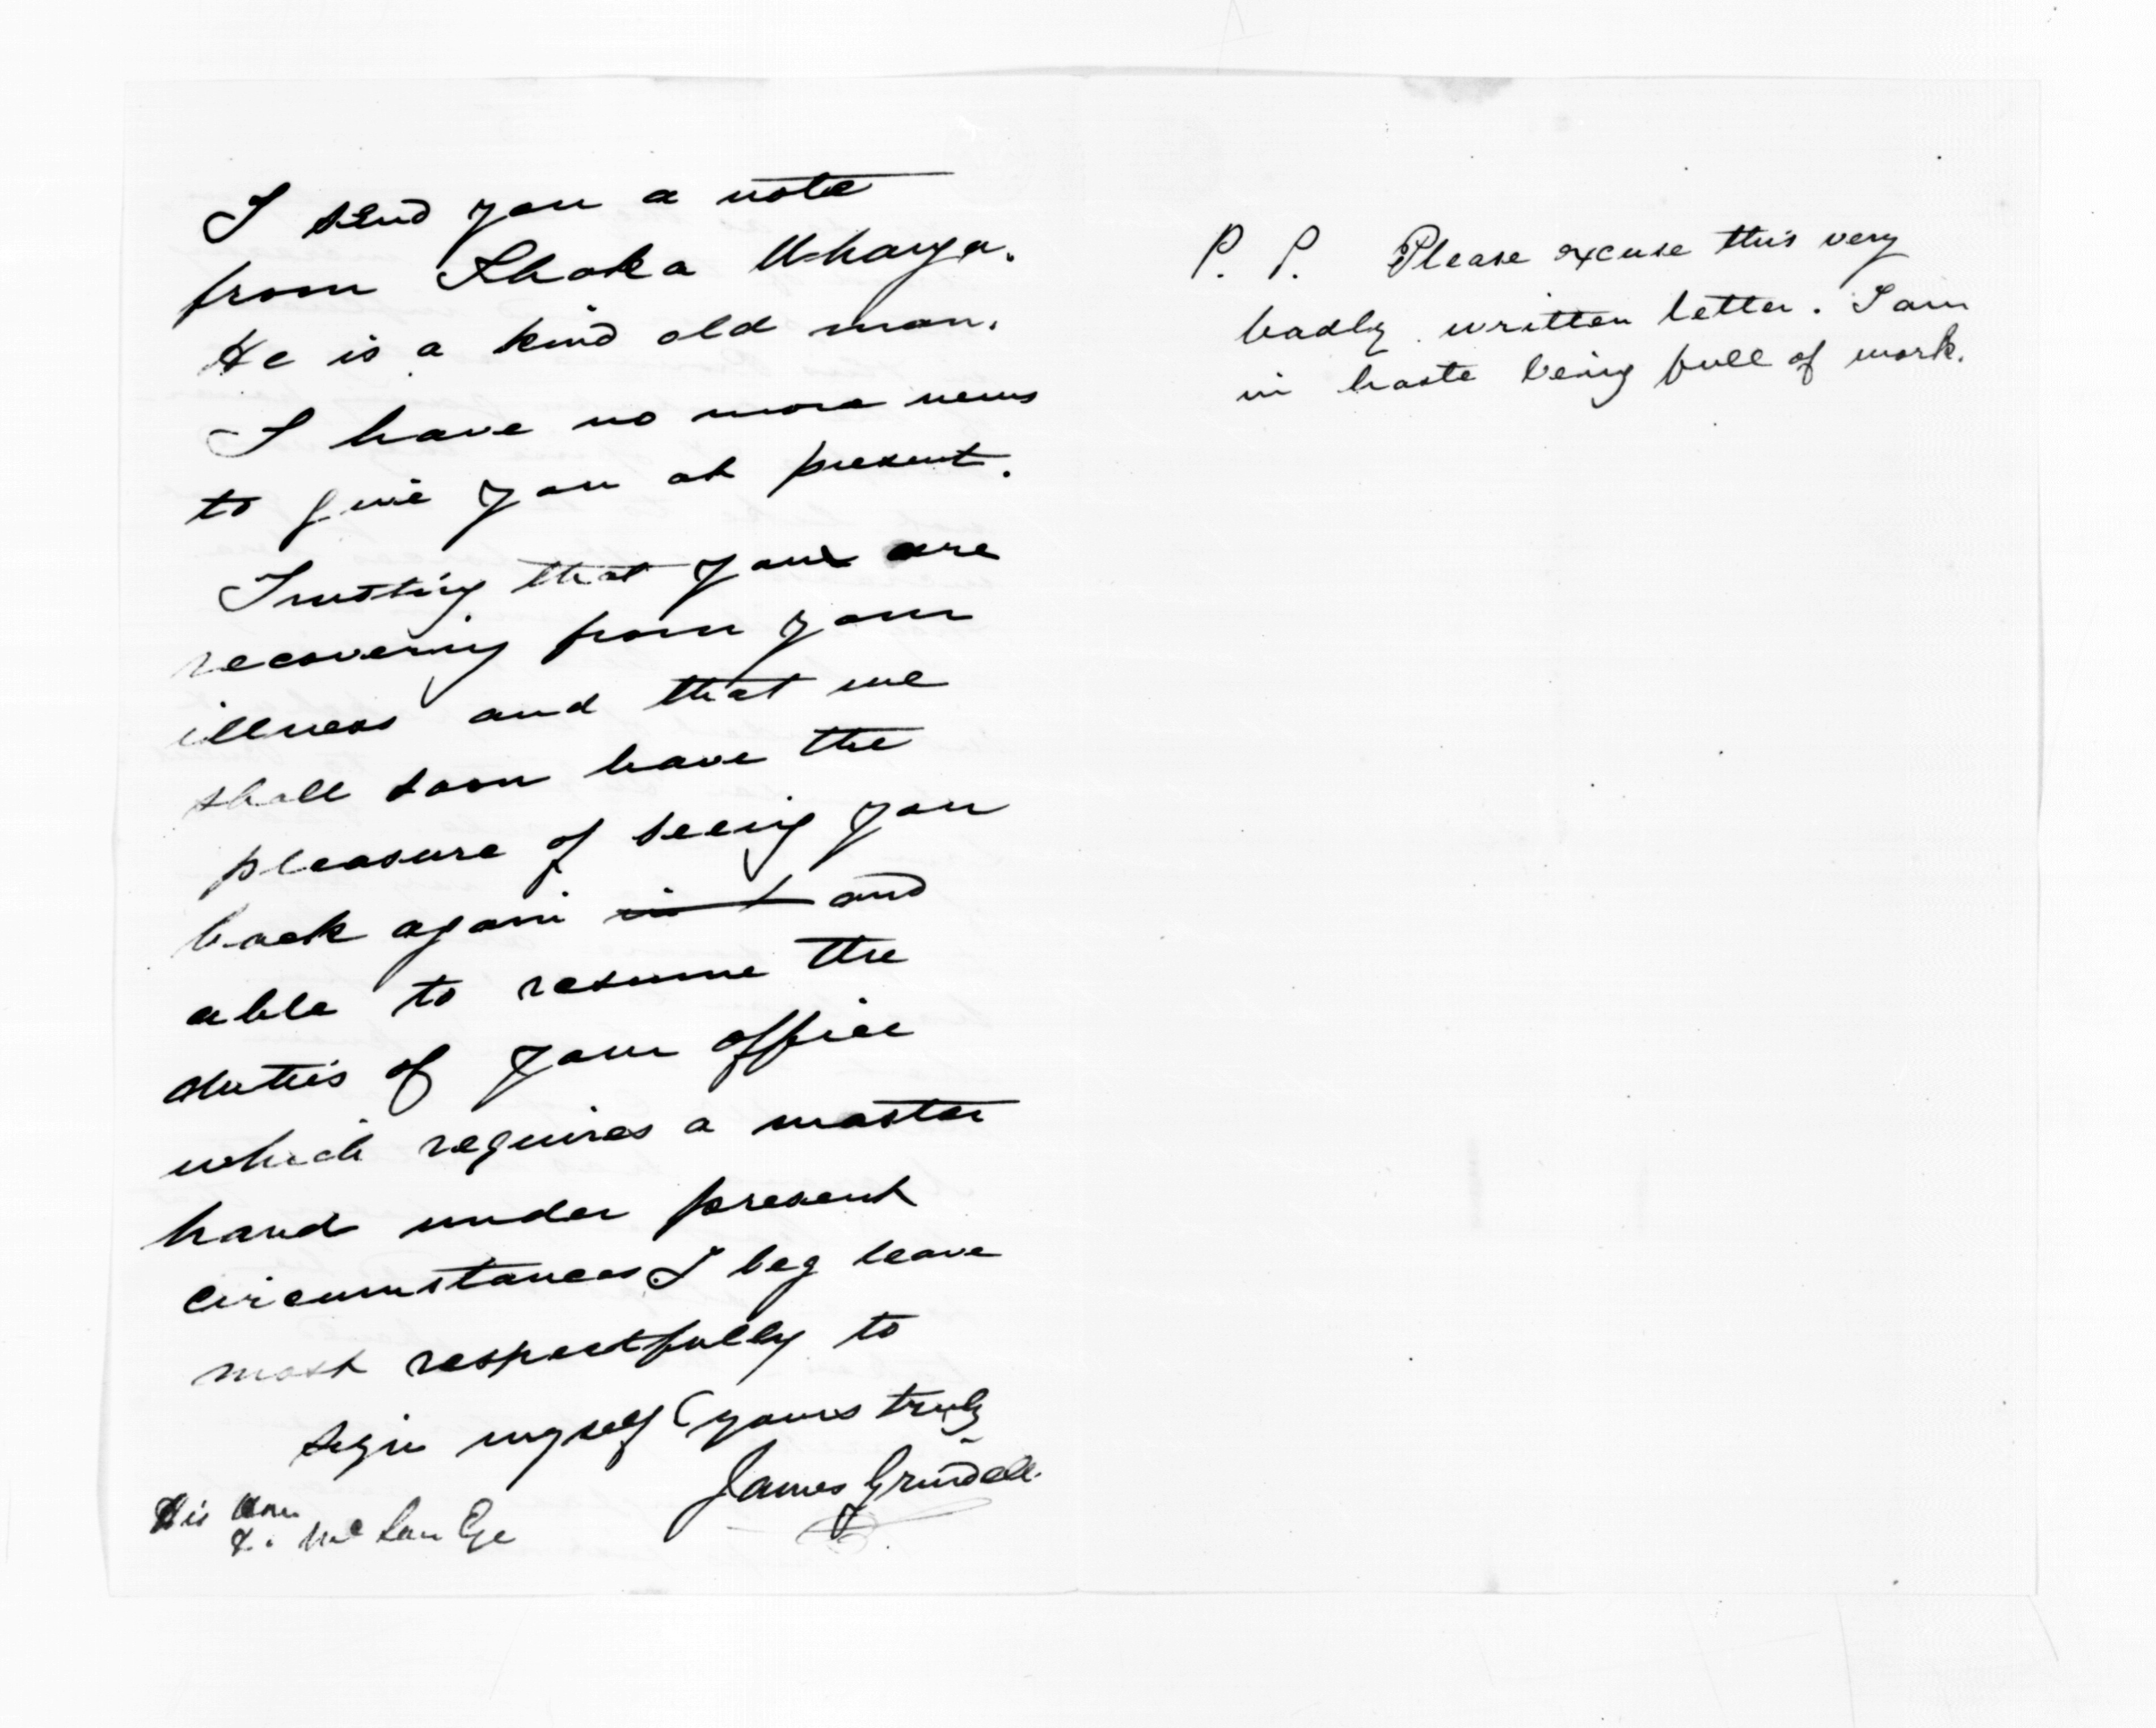 I send you a note
from
He is a kind old man.
I have no more news
to give you at present.
Trusting that you are
recovering from your
illness and that we
shall soon have the
pleasure of seeing you
back again and
able to resume the
duties of your office
which requires a master
hand under present
circumstances I beg leave
most respectfully to
sign myself yours truly
James Grindell
His Hon
Mc Lean Esq
P. P. Please excuse this very
badly written letter. I am
in haste being full of work.